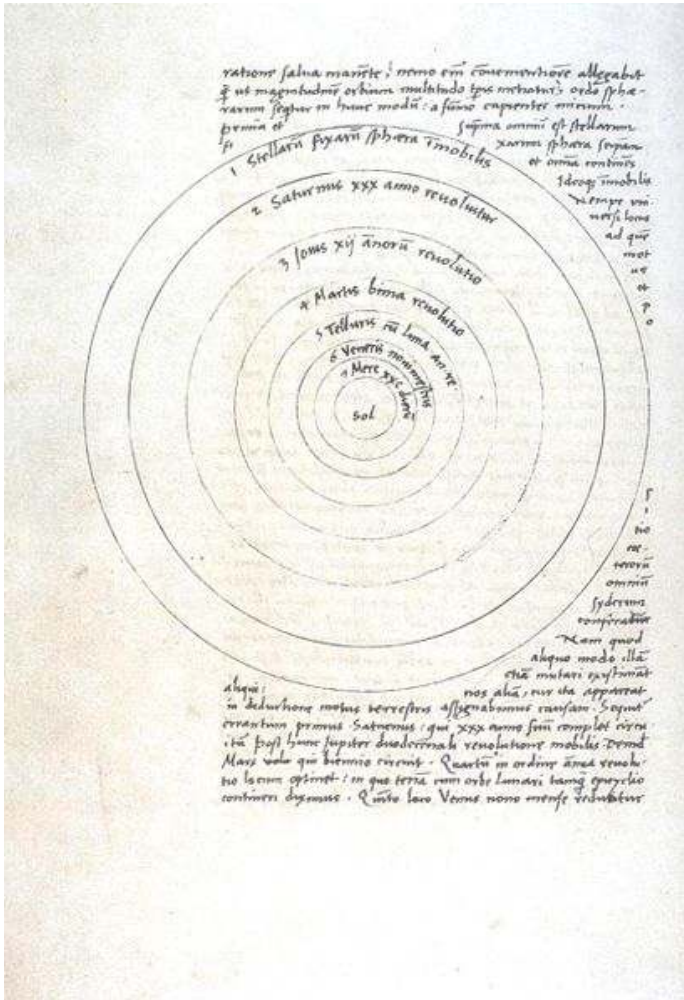 ratione salua manēte, nemo em̄ conuenientiorē allegabit
q̄ ut magnitudinē orbium multitudo tp̄is metiatur: ordo sphæ-
rarum sequitur in hunc modū: a summo capientes initium.
prima et suprema omniū est stellarum
fi xarum sphæra seipsam
et omnia continēs
Ideoq; īmobilis
nempe vni
uersi locus
ad quē
mot
us
et
p
o
1 Stellarū fixarū sphæra īmobilis
2 Saturnus xxx anno reuoluitur
3 Jouis xij annorū reuolutio
4 Martis bima reuolutio
5 Telluris cū luna an. re.
6 Veneris nonimestris
7 Merc xxc dierū
Sol
s
i
tio
cæ-
terorū
omniū
syderum
conferatur
Nam quod
aliquo modo illā
etiā mutari existimāt
aliqui: nos aliā, cur ita appareat
in deductione motus terrestris assignabimus causam. Sequit̄
errantium primus Saturnus: qui xxx anno suū complet circu
itū post hunc Jupiter duodecennali reuolutione mobilis Demū
Mars volu qui biennio circuit. Quartū in ordine annua reuolu-
tio locum optinet: in quo terrā cum orbe lunari tamq̄ epicyclio
contineri diximus. Quinto loco Venus nono mense reducitur